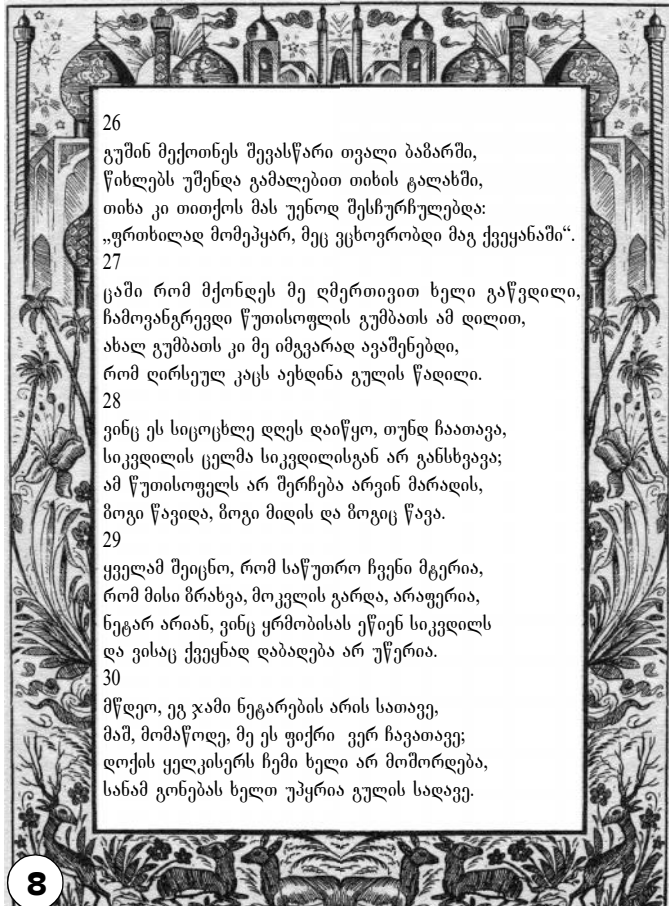 26
გუშინ მექოთნეს შევასწარი თვალი ბაზარში,
წიხლებს უშენდა გამალებით თიხის ტალახში,
თიხა კი თითქოს მას უენოდ შესჩურჩულებდა:
„ფრთხილად მომეპყარ, მეც ვცხოვრობდი მაგ ქვეყანაში“.
27
ცაში რომ მქონდეს მე ღმერთივით ხელი გაწვდილი,
ჩამოვანგრევდი წუთისოფლის გუმბათს ამ დილით,
ახალ გუმბათს კი მე იმგვარად ავაშენებდი,
რომ ღირსეულ კაცს აეხდინა გულის წადილი.
28
ვინც ეს სიცოცხლე დღეს დაიწყო, თუნდ ჩაათავა,
სიკვდილის ცელმა სიკვდილისგან არ განსხვავა;
ამ წუთისოფელს არ შერჩება არვინ მარადის,
ზოგი წავიდა, ზოგი მიდის და ზოგიც წავა.
29
ყველამ შეიცნო, რომ საწუთრო ჩვენი მტერია,
რომ მისი ზრახვა, მოკვლის გარდა, არაფერია,
ნეტარ არიან, ვინც ყრმობისას ეწიენ სიკვდილს
და ვისაც ქვეყნად დაბადება არ უწერია.
30
მწდეო, ეგ ჯამი ნეტარების არის სათავე,
მაშ, მომაწოდე, მე ეს ფიქრი ვერ ჩავათავე;
დოქის ყელკისერს ჩემი ხელი არ მოშორდება,
სანამ გონებას ხელთ უპყრია გულის სადავე.
8